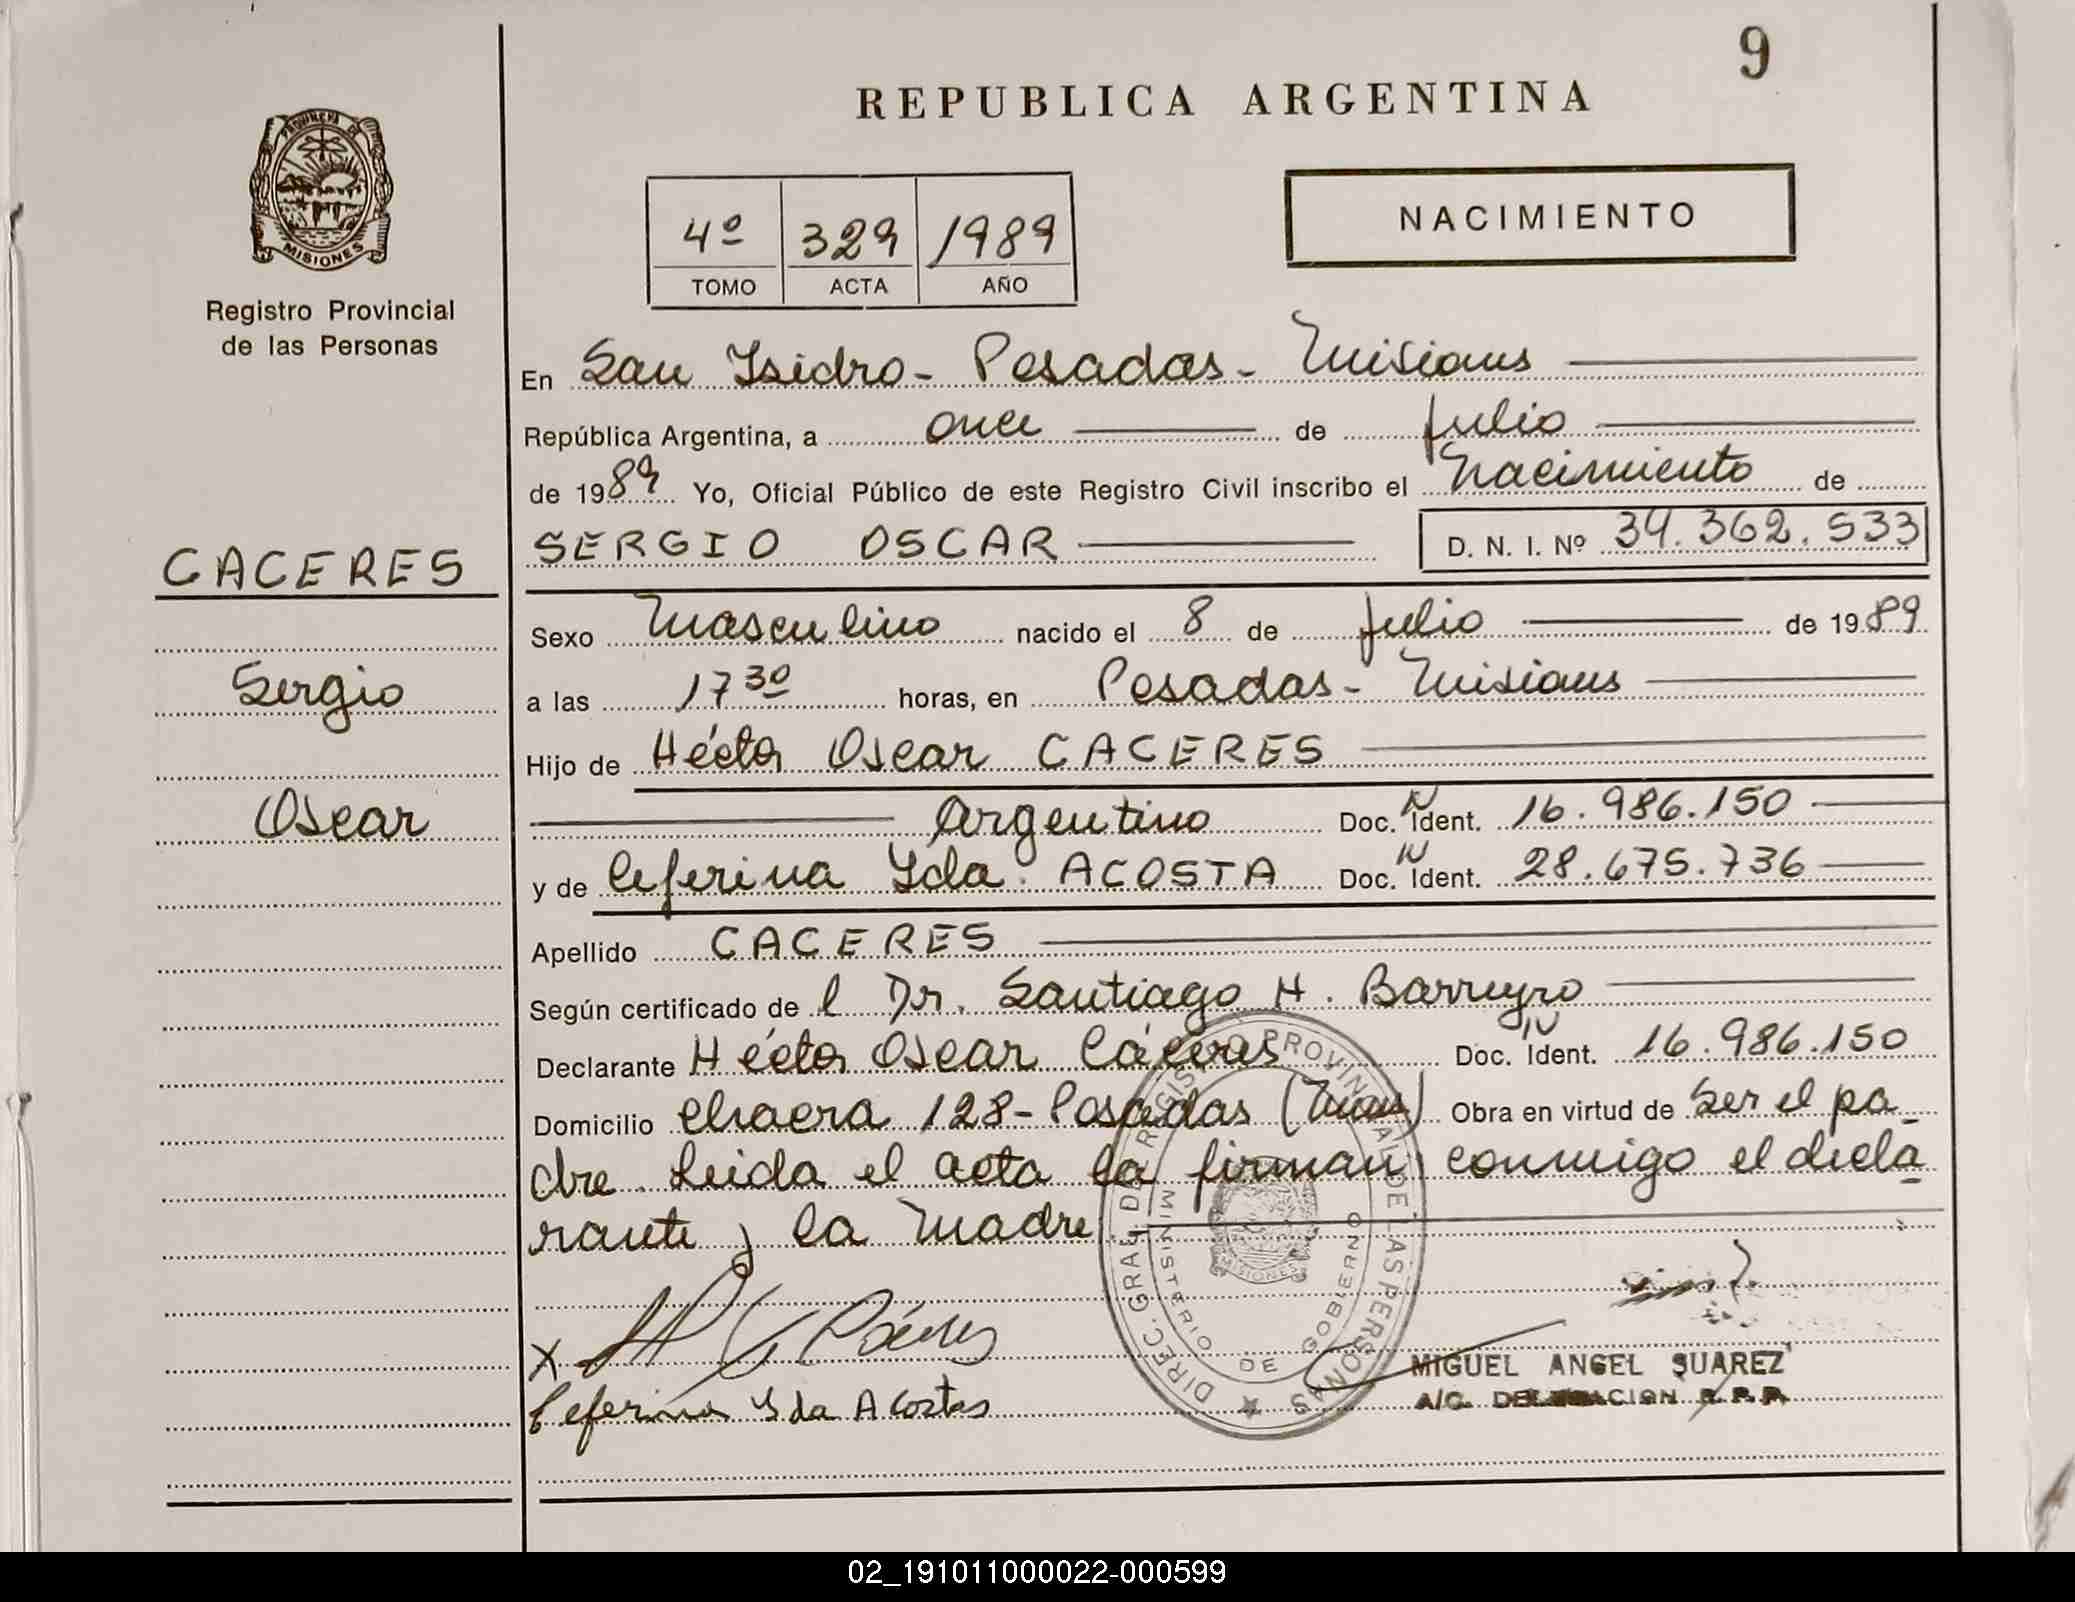 9
REPUBLICA ARGENTINA
PROVINCIA DE
MISIONES
Registro Provincial
de las Personas
4º 329 1989
TOMO ACTA AÑO
NACIMIENTO
En San Isidro - Posadas - Misiones
República Argentina, a once de Julio
de 1989 Yo, Oficial Público de este Registro Civil inscribo el Nacimiento de
CACERES
SERGIO OSCAR D. N. I. Nº 34.362.533
Sexo Masculino nacido el 8 de Julio de 1989
Sergio
a las 17 30 horas, en Posadas - Misiones
Hijo de Héctor Oscar CACERES
Oscar
Argentino Doc. N Ident. 16.986.150
y de Ceferina Yda ACOSTA Doc. N Ident. 28.675.736
Apellido CACERES
Según certificado de l Dr. Santiago H. Barreyro
Declarante Héctor Oscar Cáceres Doc. N Ident. 16.986.150
Domicilio Chacra 128 - Posadas (Mnes) Obra en virtud de Ser el pa-
dre. Leida el acta la firman conmigo el decla-
rante y la Madre
DIREC. GRAL. DEL REGISTRO PROVINCIAL DE LAS PERSONAS
MINISTERIO DE GOBIERNO
MISIONES
X Cáceres
Ceferina Yda Acostas
MIGUEL ANGEL SUAREZ
A/C. DELEGACION R.P.P.
02_191011000022-000599